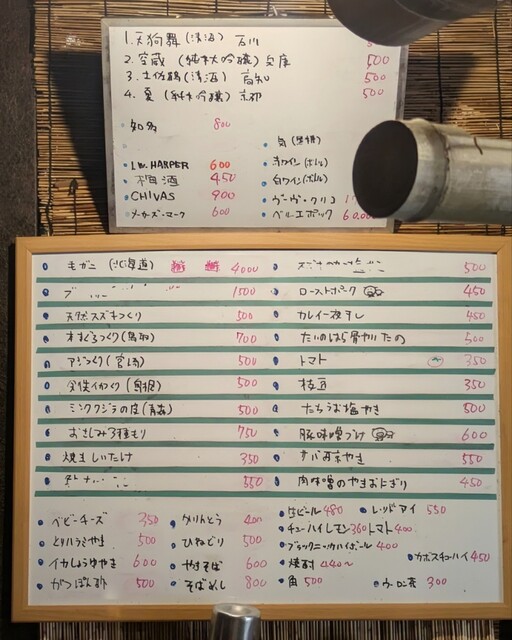 1. 天狗舞 (清酒) 石川
2. 空蔵 (純米大吟醸) 兵庫 500
3. 土佐鶴 (清酒) 高知 500
4. 夏 (純米大吟醸) 京都 500
知多 800
I.W. HARPER 600
梅酒 450
CHIVAS 900
メーカーズ・マーク 600
赤ワイン (ボトル)
白ワイン (ボトル)
ヴーヴ・クリコ
ベル・エポック
毛ガニ (北海道) 4000
1500
天然スズキつくり 500
本まぐろつくり (鳥取) 700
アジつくり (宮崎) 500
剣先イカつくり (島根) 500
ミンククジラの皮 (青森) 500
おさしみ3種もり 750
焼きしいたけ 350
550
500
ローストポーク 450
カレイ一夜干し 450
たいのはら骨やいたの 500
トマト 350
枝豆 350
たちうお塩やき 500
豚味噌づけ 600
サバ西京やき 550
肉味噌のやきおにぎり 450
ベビーチーズ 350
とりハラミやき 500
イカしょうゆやき 600
がつぽん酢 500
かりんとう 400
ひねどり 500
やきそば 600
そばめし 800
生ビール 480
レッドアイ 550
チューハイレモン 360 トマト 400
ブラックニッカハイボール 400
カボスチューハイ 450
焼酎 440〜
角 500
ウーロン茶 300